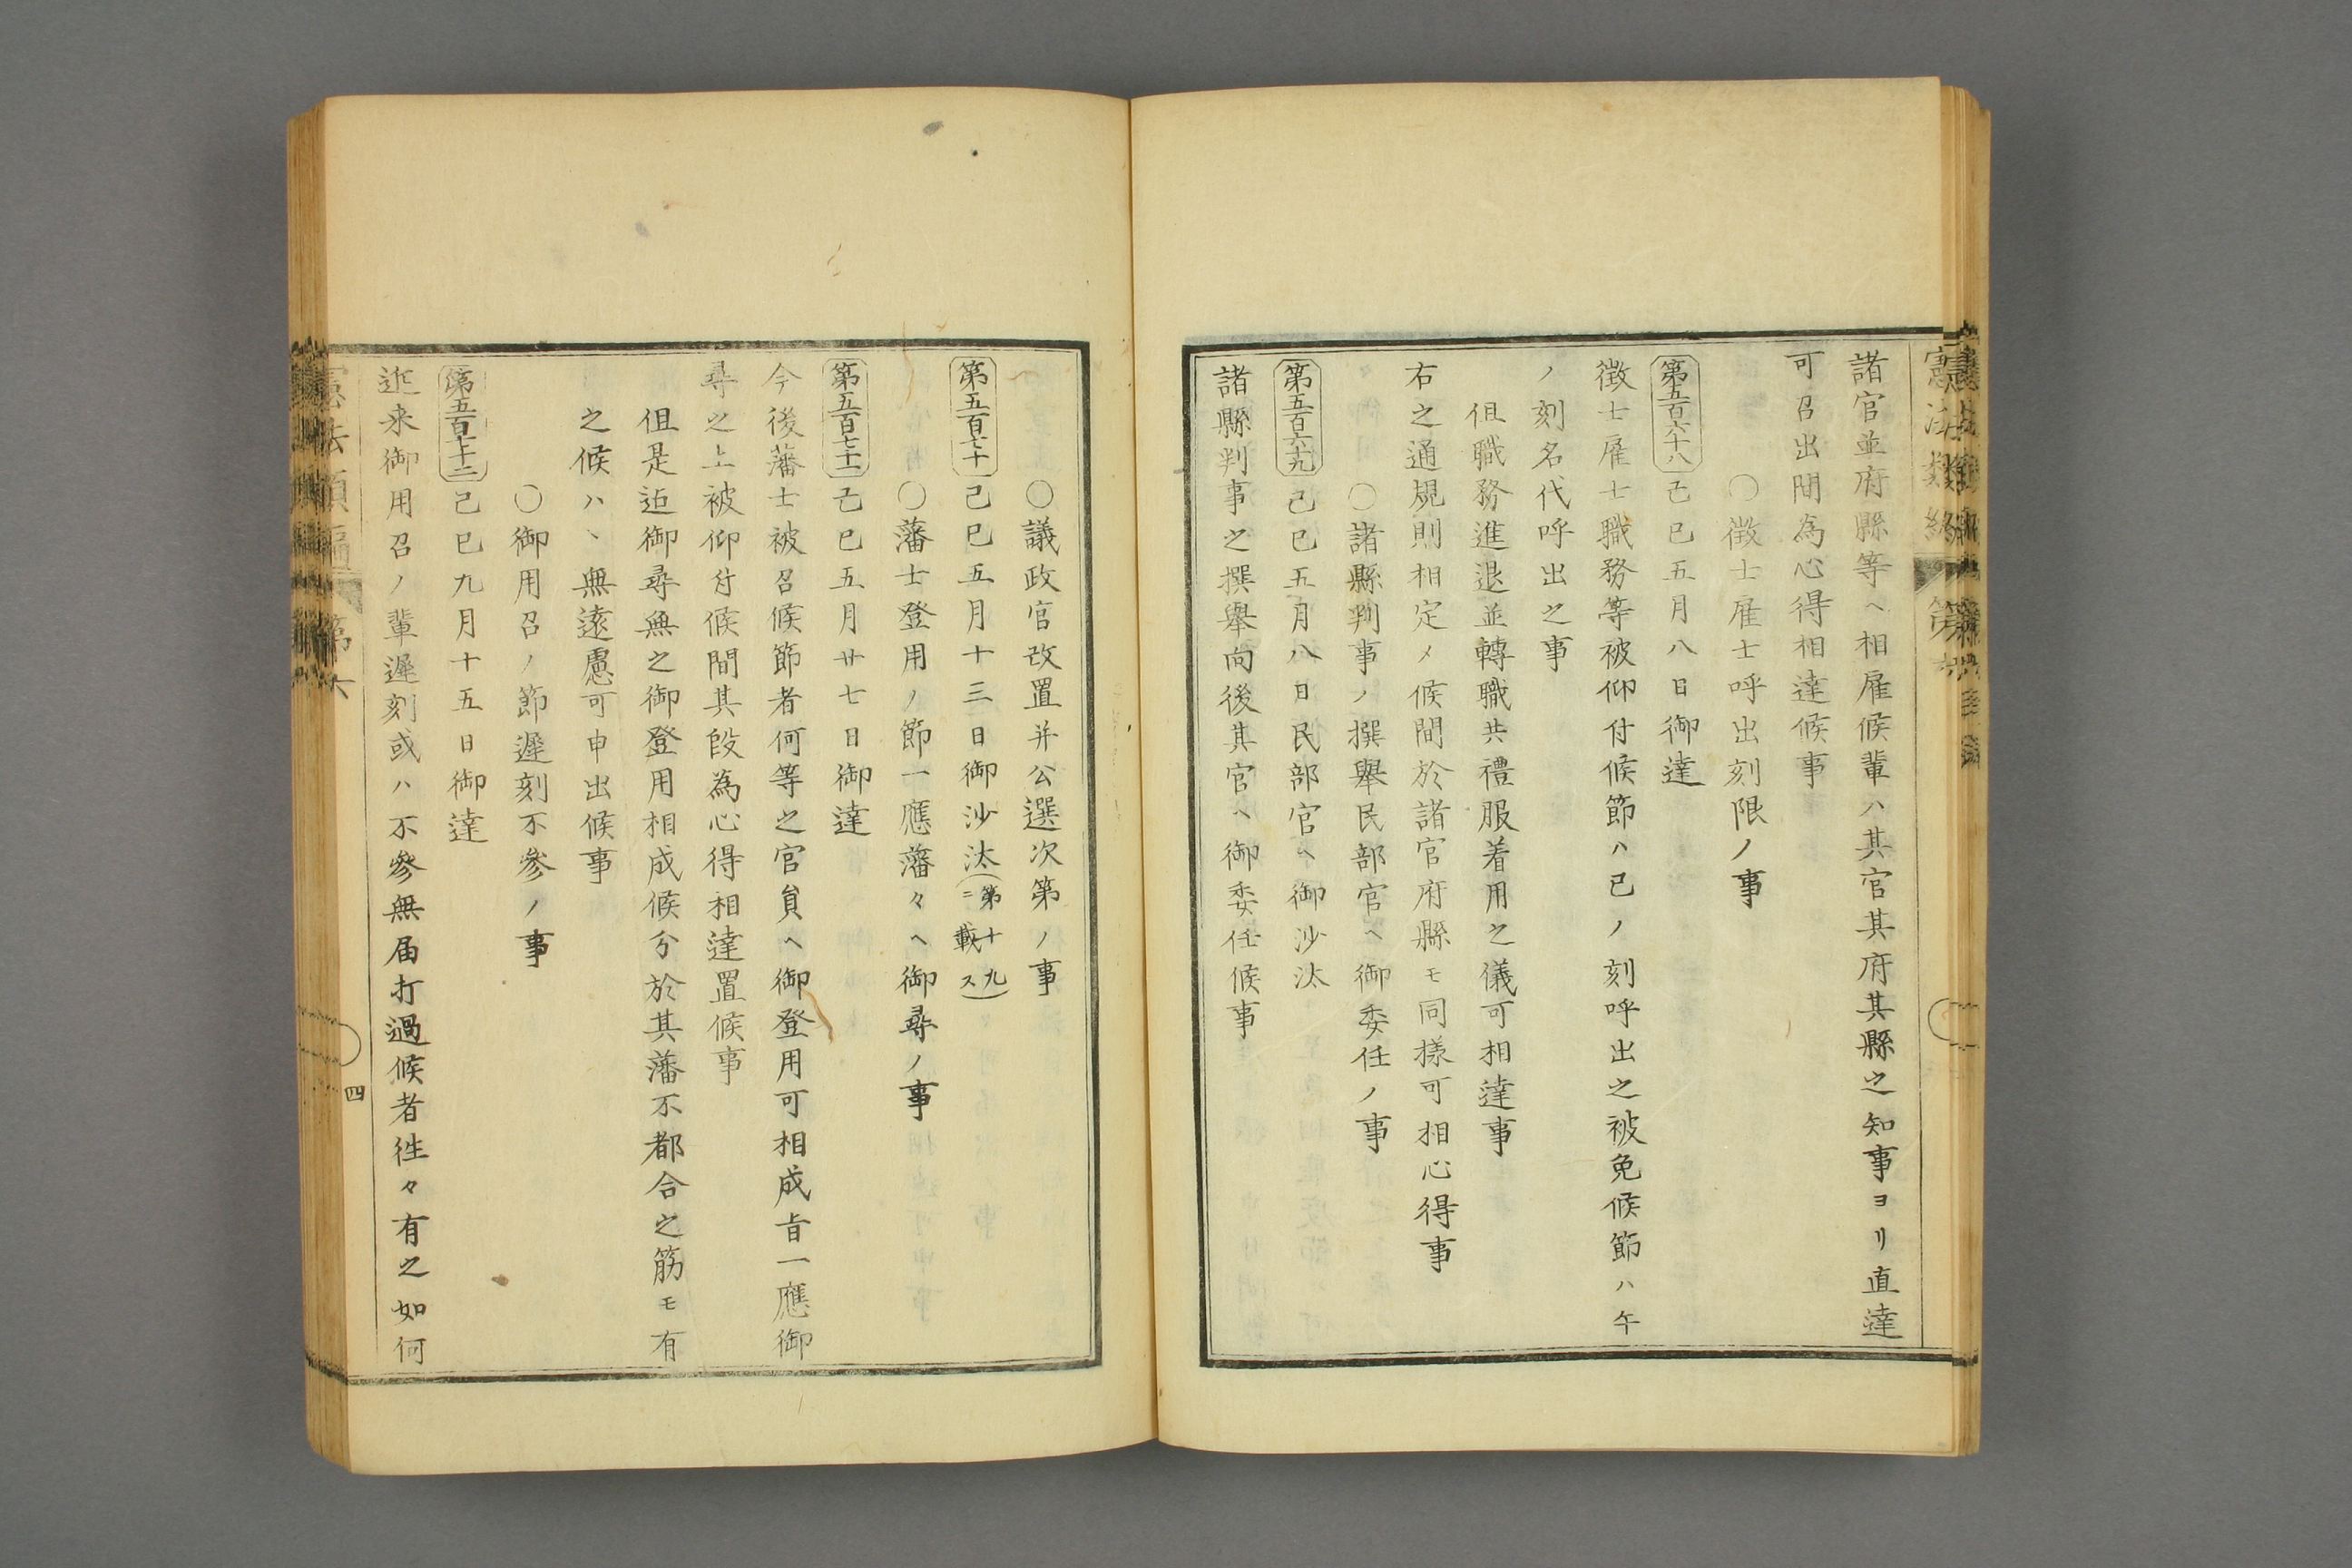 諸官並府縣等ヘ相雇候輩ハ其官其府其縣之知事ヨリ直達
可召出間為心得相達候事
〇徴士雇士呼出刻限ノ事
第五百六十八 己巳五月八日御達
徴士雇士職務等被仰付候節ハ巳ノ刻呼出之被免候節ハ午
ノ刻名代呼出之事
但職務進退並轉職共禮服着用之儀可相達事
右之通規則相定メ候間於諸官府縣モ同樣可相心得事
〇諸縣判事ノ撰舉民部官ヘ御委任ノ事
第五百六十九 己巳五月八日民部官ヘ御沙汰
諸縣判事之撰舉向後其官ヘ御委任候事
〇議政官改置并公選次第ノ事
第五百七十 己巳五月十三日御沙汰(第十九ニ載ス)
〇藩士登用ノ節一應藩々ヘ御尋ノ事
第五百七十一 己巳五月廿七日御達
今後藩士被召候節者何等之官員ヘ御登用可相成旨一應御
尋之上被仰付候間其段為心得相達置候事
但是迄御尋無之御登用相成候分於其藩不都合之筋モ有
之候ハヽ無遠慮可申出候事
〇御用召ノ節遲刻不參ノ事
第五百七十二 己巳九月十五日御達
近来御用召ノ輩遲刻或ハ不參無届打過候者徃々有之如何
憲法類編 第六
四